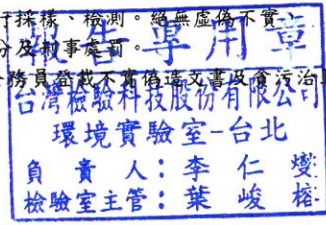 行採樣、檢測。絕無虛偽不實
分及刑事處罰。
報告專用章
務員登載不實偽造文書及貪污治
台灣檢驗科技股份有限公司
環境實驗室-台北
負責人：李仁燮
檢驗室主管：葉峻榕